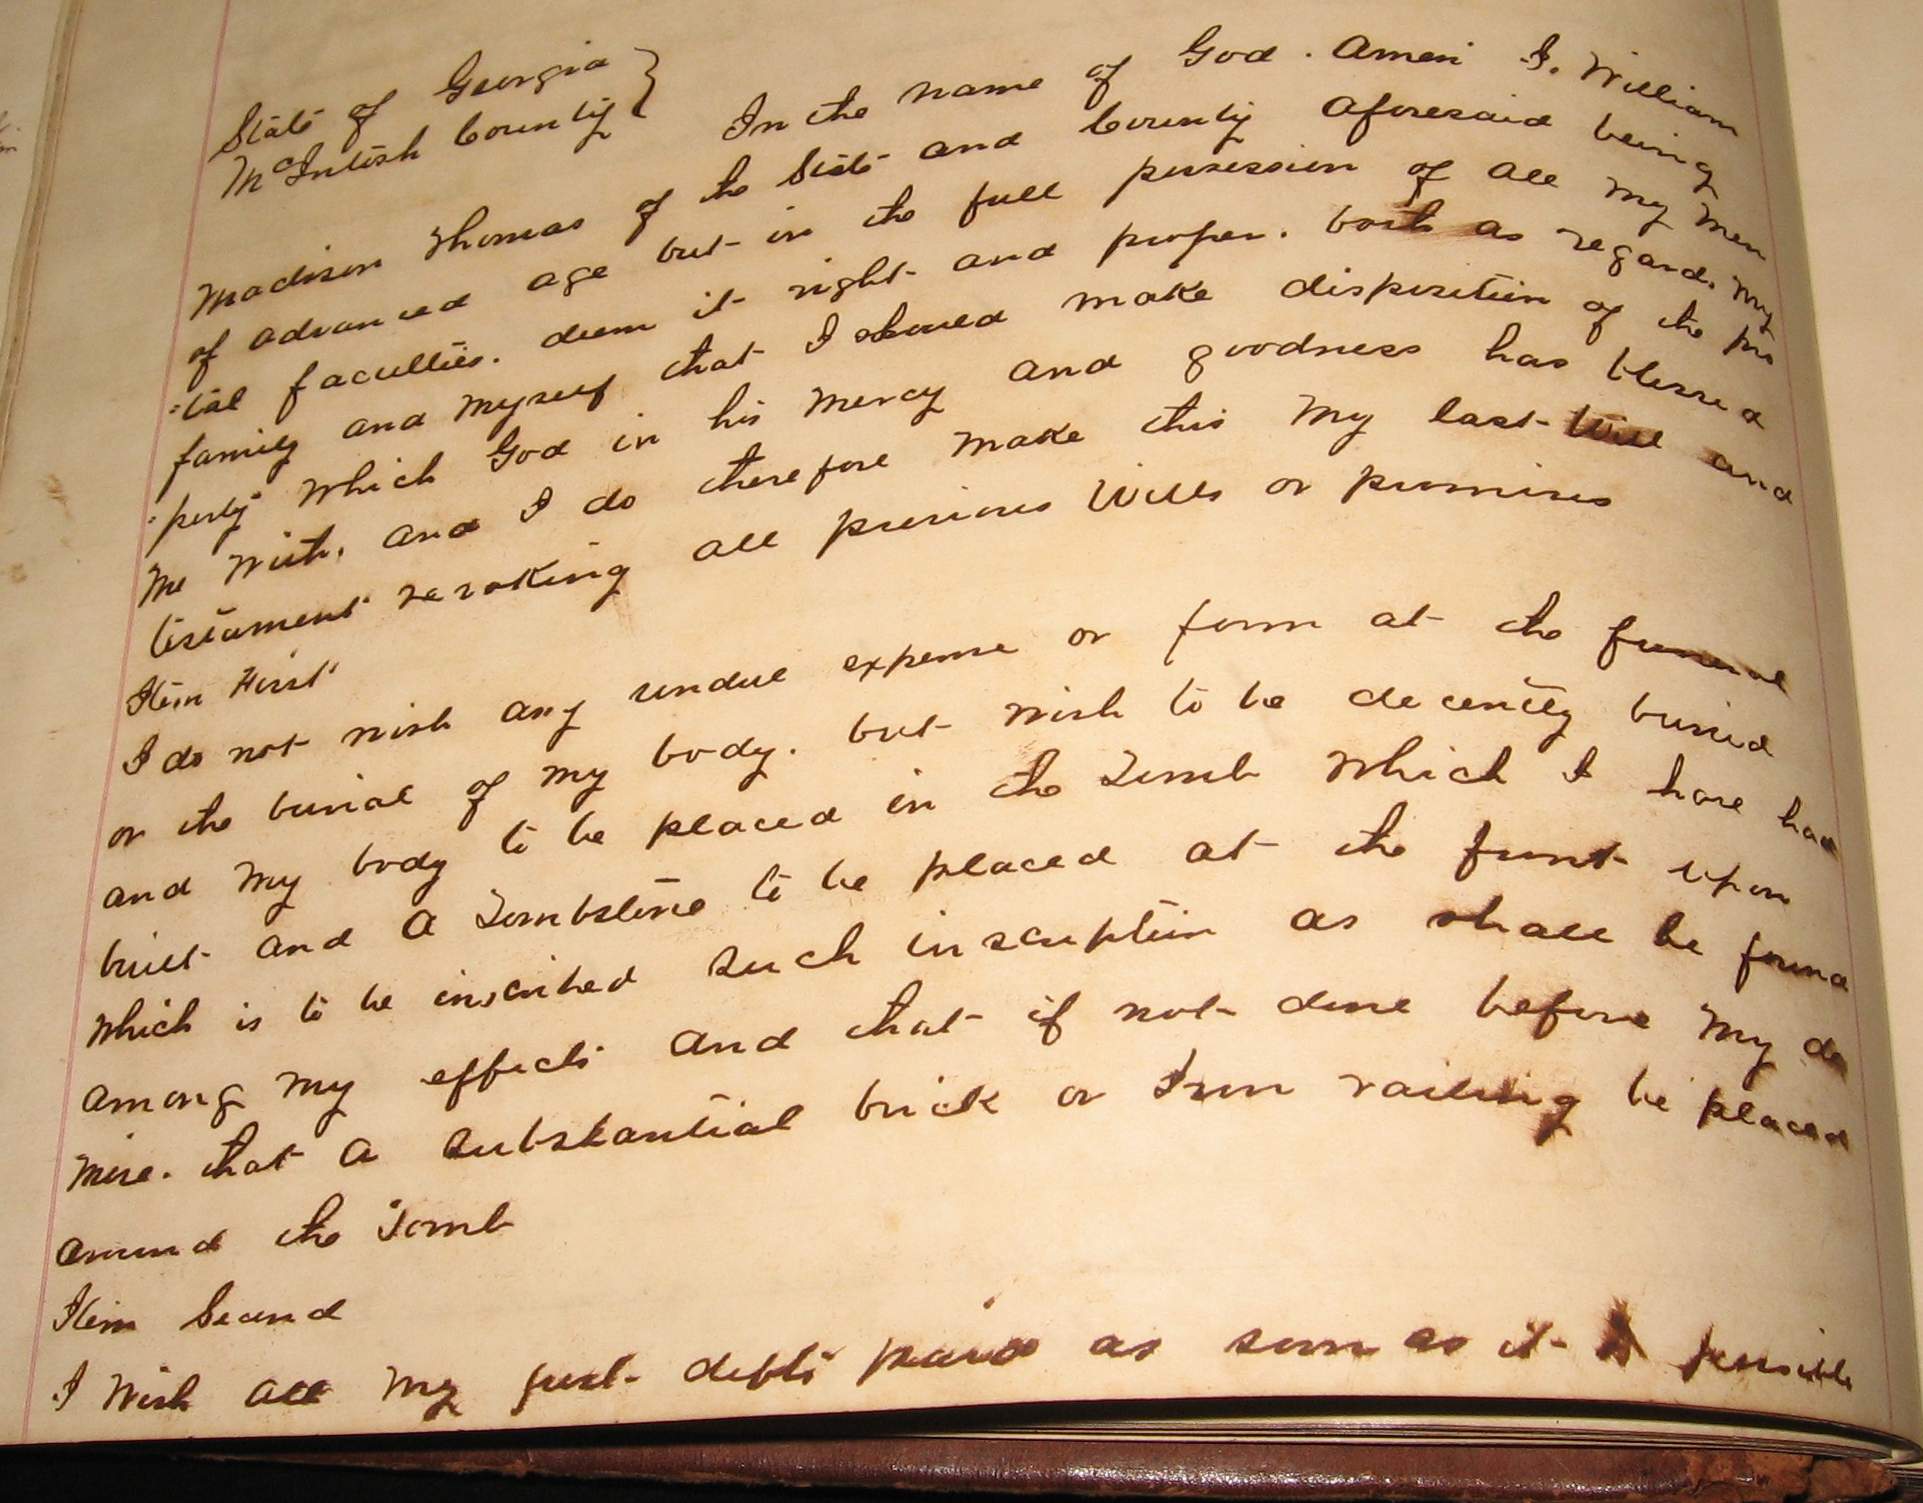 State of Georgia }
McIntosh County }
In the name of God. Amen I, William
Madison Thomas of the State and County aforesaid being
of advanced age but in the full possession of all my men
-tal faculties. deem it right and proper. both as regards my
family and myself that I should make disposition of the pro
-perty which God in his mercy and goodness has blessed
me with, and I do therefore make this my last Will and
testament revoking all previous Wills or promises
Item First
I do not wish any undue expense or form at the funeral
or the burial of my body. but wish to be decently buried
and my body to be placed in the Tomb which I have had
built and a Tombstone to be placed at the front upon
which is to be inscribed such inscription as shall be found
among my effects and that if not done before my de
mise. that a substantial brick or Iron railing be placed
around the Tomb
Item Second
I wish all my just debts paid as soon as it is possible